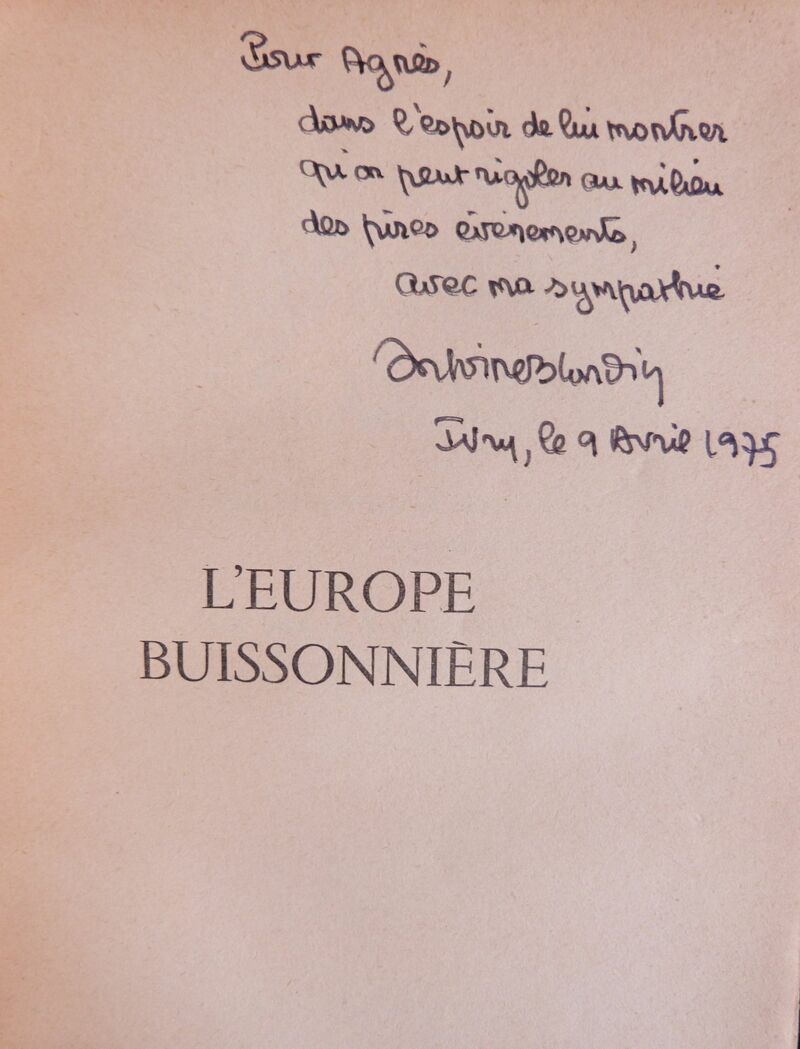 Pour Agnès,
dans l'espoir de lui montrer
qu'on peut rigoler au milieu
des pires évènements,
avec ma sympathie
Antoine Blondin
Ivry, le 9 Avril 1975
L'EUROPE
BUISSONNIÈRE